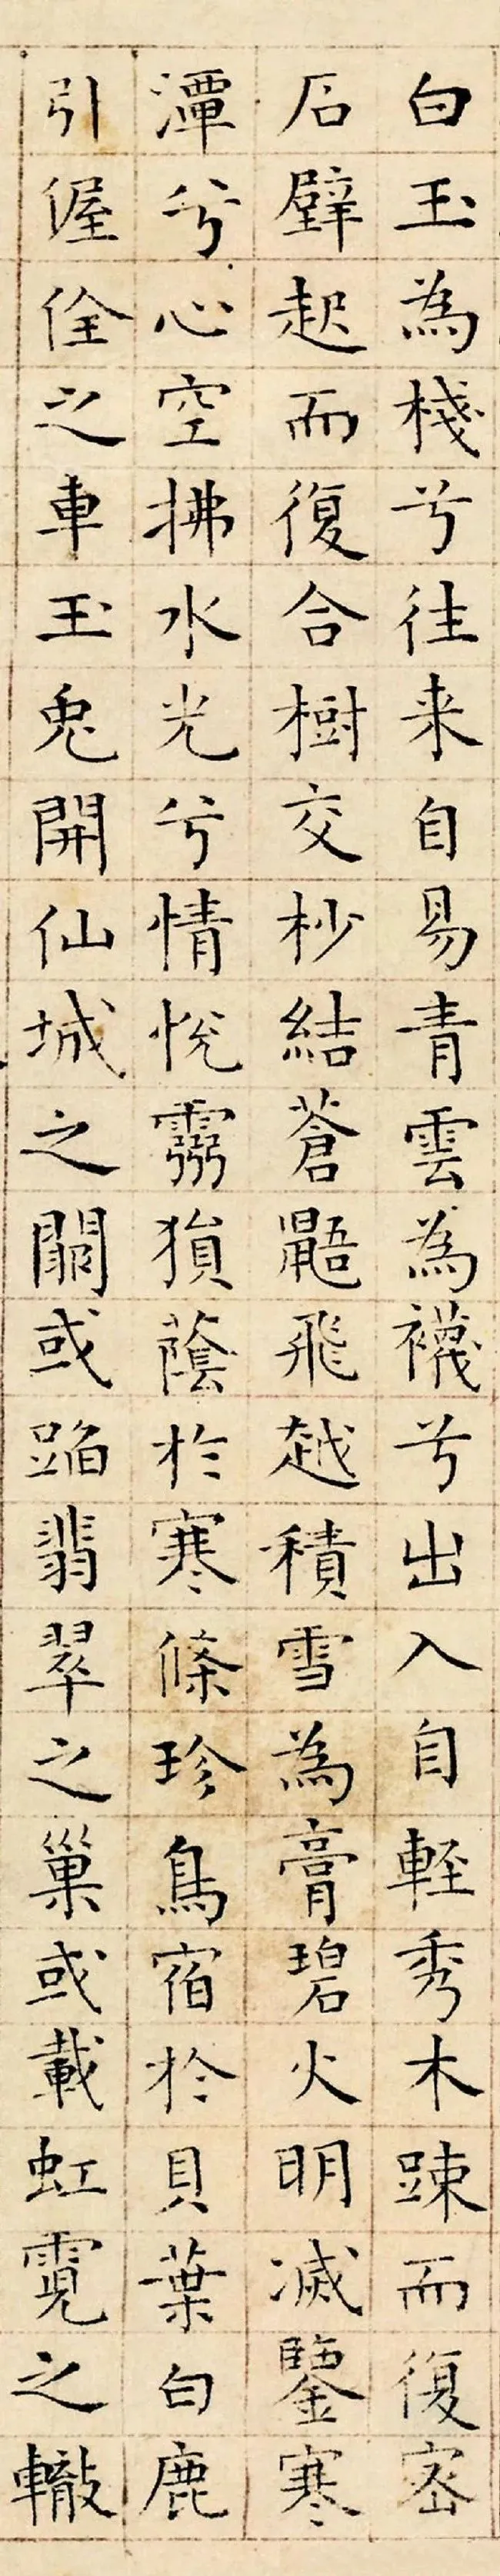 白玉為棧兮往来自易青雲為襪兮出入自輕秀木踈而復密
石壁起而復合樹交杪結蒼鼯飛越積雪為膏碧火明滅鑒寒
潭兮心空拂水光兮情悅靈猿蔭於寒條珍鳥宿於貝葉白鹿
引偓佺之車玉兎開仙城之闕或蹈翡翠之巢或載虹霓之轍